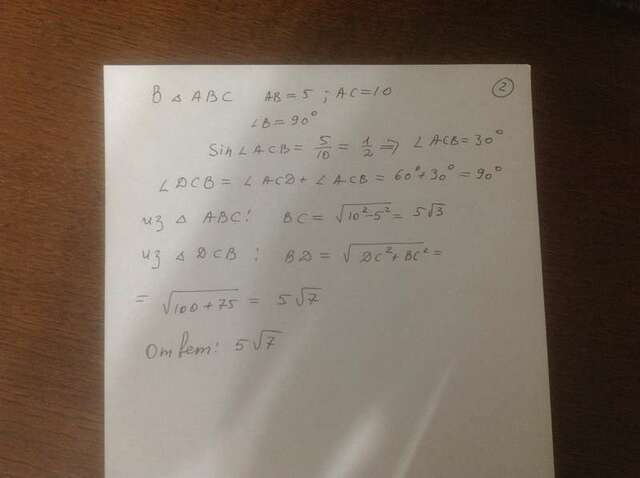 В △ ABC AB = 5 ; AC = 10 ②
∠B = 90°
Sin∠ACB = 5/10 = 1/2 ⇒ ∠ACB = 30°
∠DCB = ∠ACD + ∠ACB = 60° + 30° = 90°
из △ ABC: BC = √(10² - 5²) = 5√3
из △ DCB : BD = √(DC² + BC²) =
= √(100 + 75) = 5√7
Ответ: 5√7